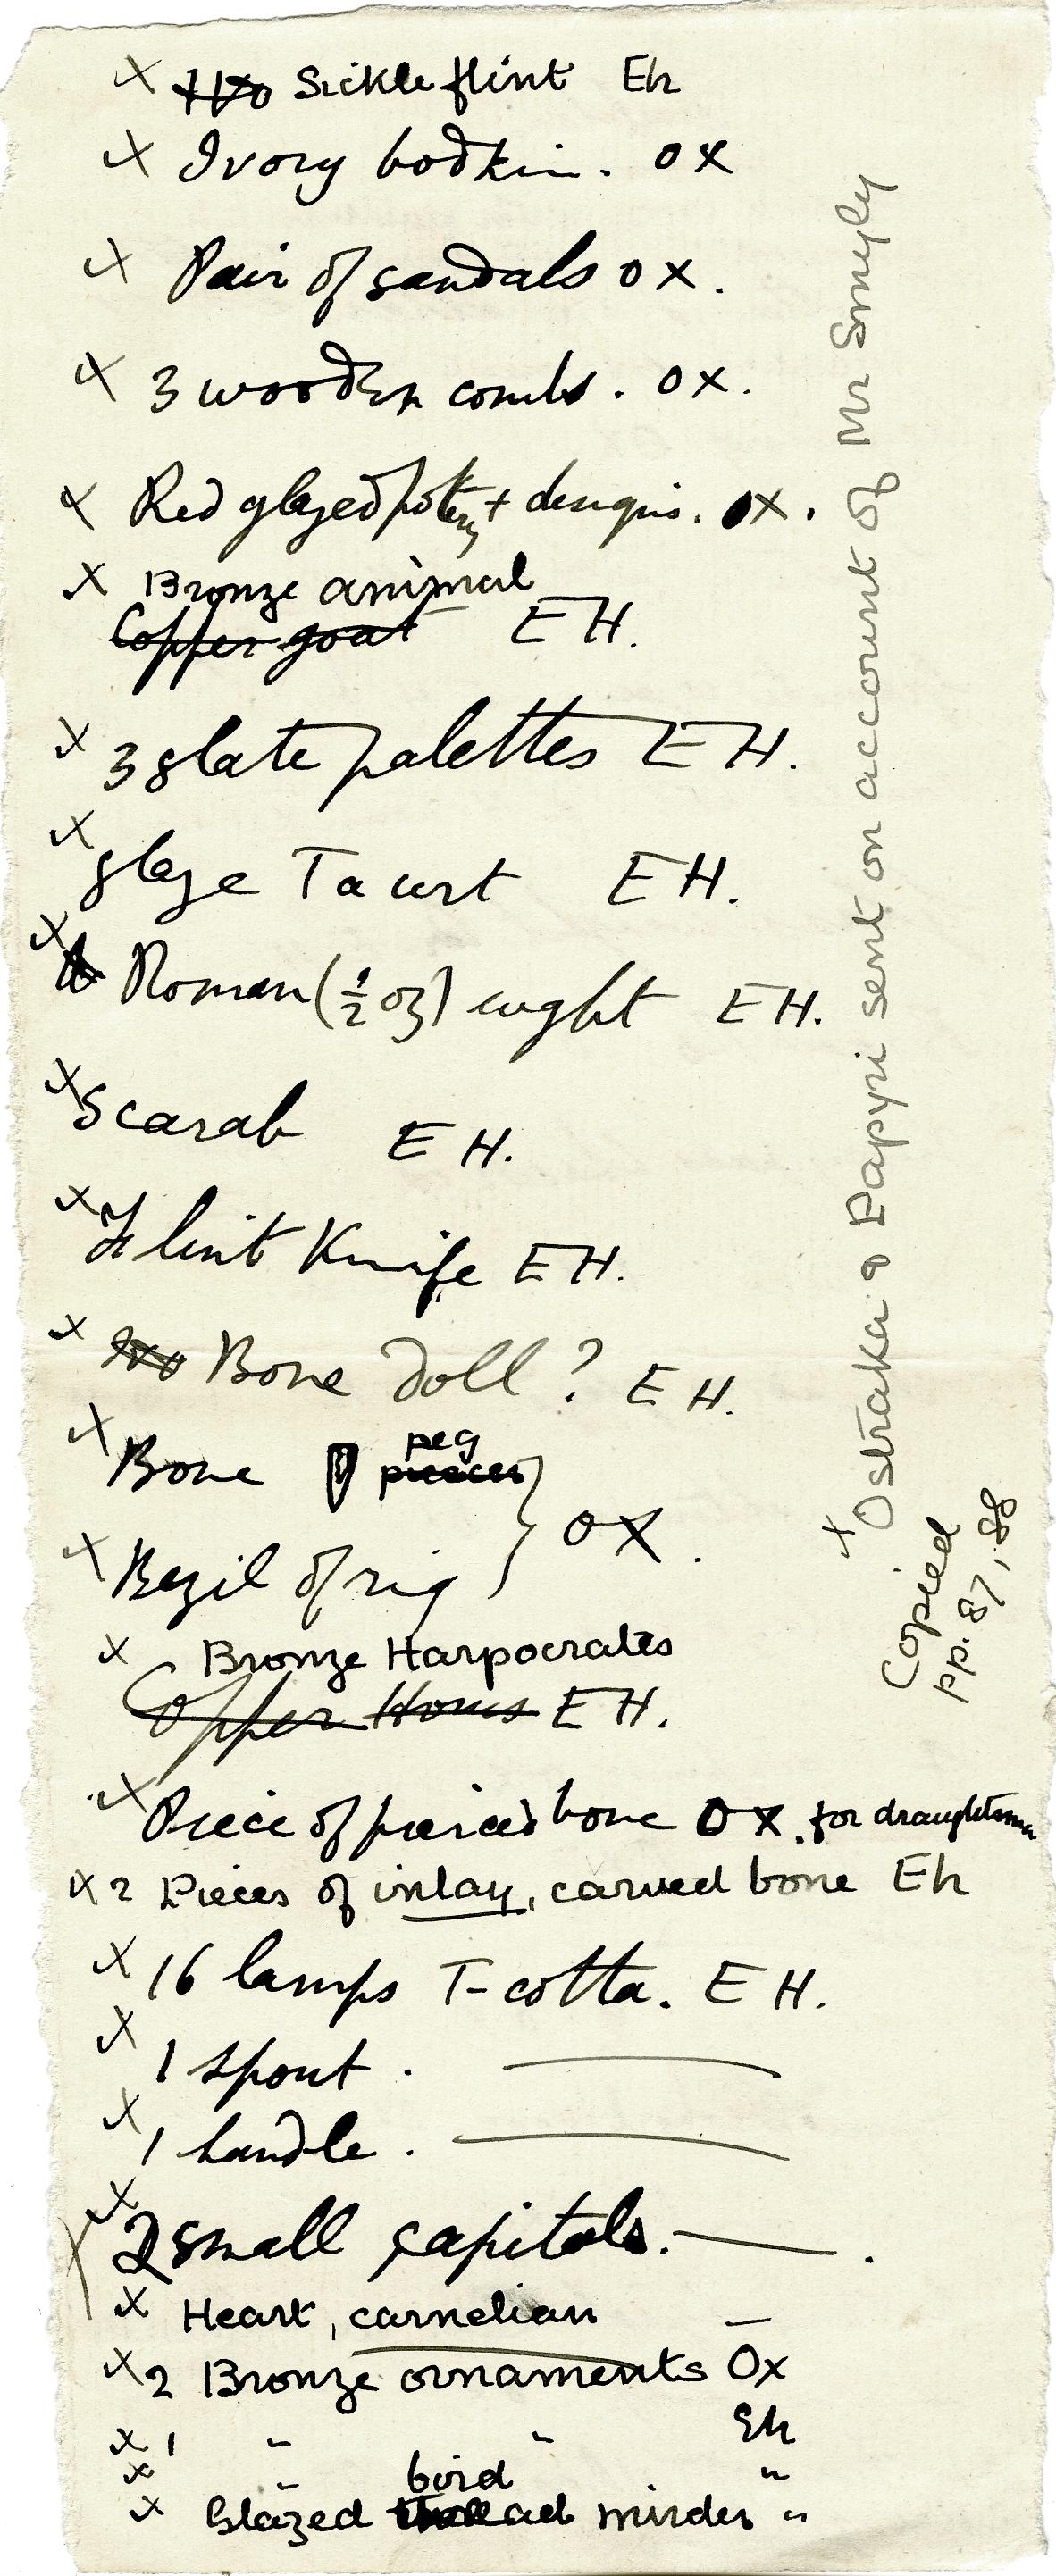 x Sickle flint Eh
x Ivory bodkin. OX
x Pair of sandals OX.
x 3 wooden combs. OX.
x Red glazed pottery + designs. OX.
x Bronze animal
Copper goat EH.
x 3 slate palettes EH.
x glaze Taurt EH.
x Roman (½ oz) weight EH.
x Scarab EH.
x Flint Knife EH.
x Bone Doll? EH.
x Bone peg
pieces
x Bezil of rig } OX.
x Bronze Harpocrates
Copper Horus EH.
x Piece of pierced bone OX. for draughtsman
x 2 Pieces of inlay, carved bone Eh
x 16 lamps T-cotta. EH.
x 1 spout. —
x 1 handle. —
x 2 small capitals. — .
x Heart, carnelian —
x 2 Bronze ornaments Ox
x 1 " " Eh
x " bird "
x Glazed winder "
x Ostraka & Papyri sent on account of Mr Smyly
Copied
pp. 87, 88